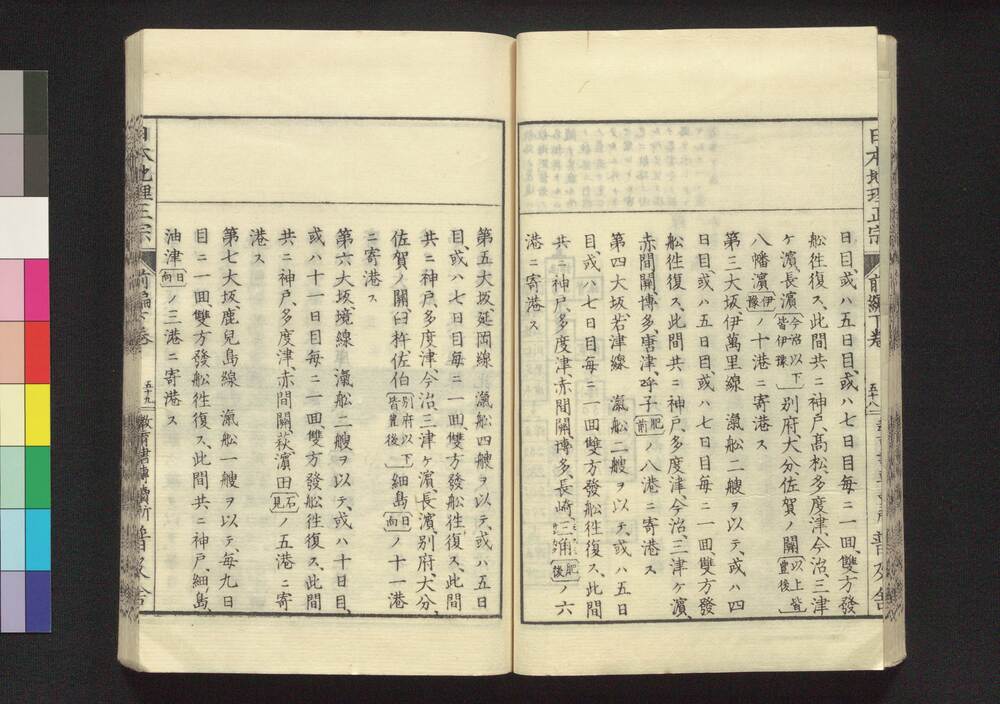 日本地理正宗
前編下巻
五十八
普及舎
日目、或ハ五日目、或ハ七日目毎ニ一回、雙方發
舩徃復ス、此間共ニ神戸、高松、多度津、今治、三津
ケ濱、長濱〔今治以下皆伊豫〕別府、大分、佐賀ノ關〔以上皆豊後〕
八幡濱〔伊豫〕ノ十港ニ寄港ス
第三大坂伊萬里線 瀛舩二艘ヲ以テ、或ハ四
日目、或ハ五日目或ハ七日目毎ニ一回、雙方發
舩徃復ス、此間共ニ神戸、多度津、今治、三津ケ濱、
赤間關、博多、唐津、呼子〔肥前〕ノ八港ニ寄港ス
第四大坂若津線 瀛舩二艘ヲ以テ、或ハ五日
目或ハ七日目毎ニ一回雙方發舩徃復ス、此間
共ニ神戸、多度津、赤間關、博多、長崎三角〔肥後〕ノ六
港ニ寄港ス
第五大坂、延岡線 瀛舩四艘ヲ以テ、或ハ五日
目、或ハ七日目毎ニ一回、雙方發舩徃復ス、此間
共ニ神戸、多度津、今治、三津ケ濱、長濱、別府、大分、
佐賀ノ關、臼杵、佐伯〔別府以下皆豊後〕細島〔日向〕ノ十一港
ニ寄港ス
第六大坂、境線 瀛舩二艘ヲ以テ、或ハ十日目、
或ハ十一日目毎ニ一回、雙方發舩徃復ス、此間
共ニ神戸、多度津、赤間關、萩、濱田〔石見〕ノ五港ニ寄
港ス
第七大坂、鹿兒島線 瀛舩一艘ヲ以テ、毎九日
目ニ一回、雙方發舩徃復ス、此間共ニ神戸、細島、
油津〔日向〕ノ三港ニ寄港ス
日本地理正宗
前編下巻
五十九
教育書專賣所
普及舎